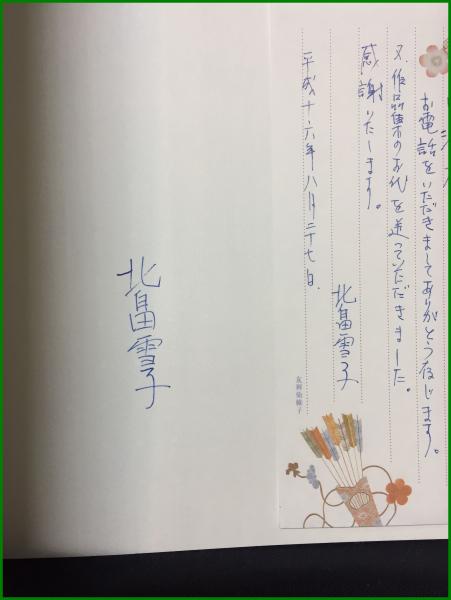 お電話をいただきましてありがとう存じます。
又、作品集のお代を送っていただきました。
感謝いたします。
平成十六年八月二十七日.
北畠雪子
北畠雪子